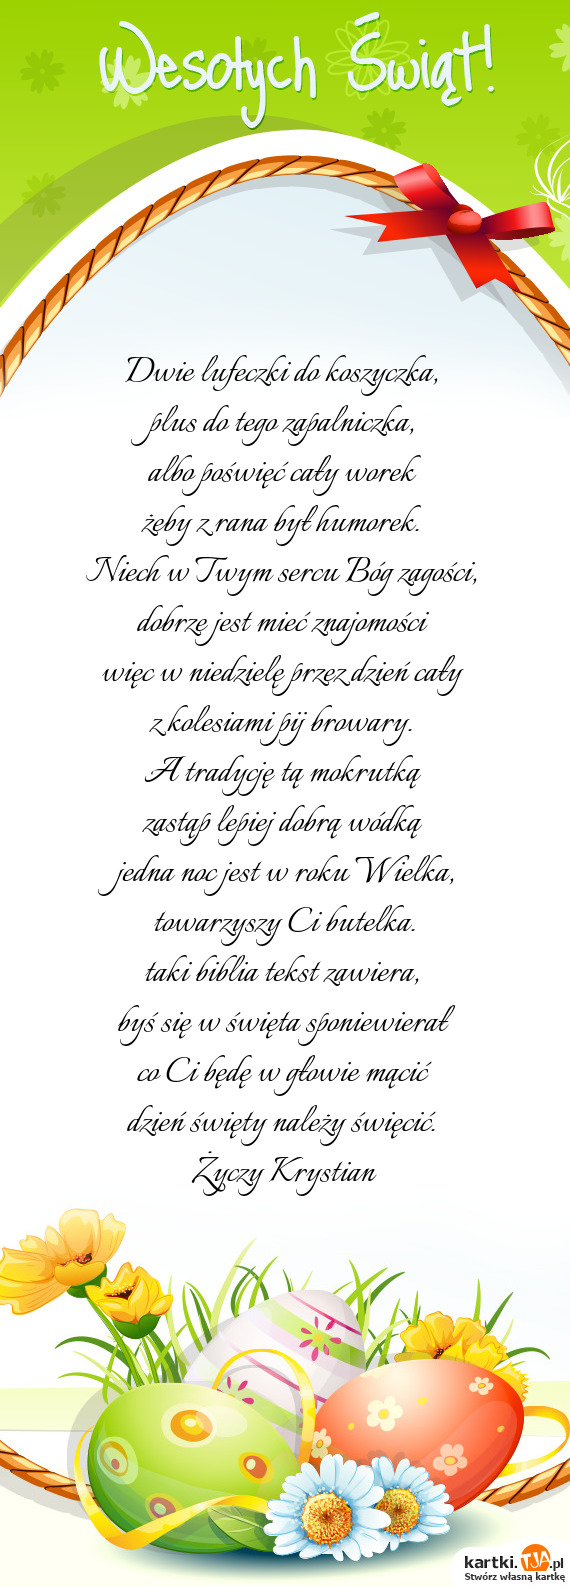 Wesołych Świąt!
Dwie lufeczki do koszyczka,
plus do tego zapalniczka,
albo poświęć cały worek
żeby z rana był humorek.
Niech w Twym sercu Bóg zagości,
dobrze jest mieć znajomości
więc w niedzielę przez dzień cały
z kolesiami pij browary.
A tradycję tą mokrutką
zastąp lepiej dobrą wódką
jedna noc jest w roku Wielka,
towarzyszy Ci butelka.
taki biblia tekst zawiera,
byś się w święta sponiewierał
co Ci będę w głowie mącić
dzień święty należy święcić.
Życzy Krystian
kartki.TJA.pl
Stwórz własną kartkę